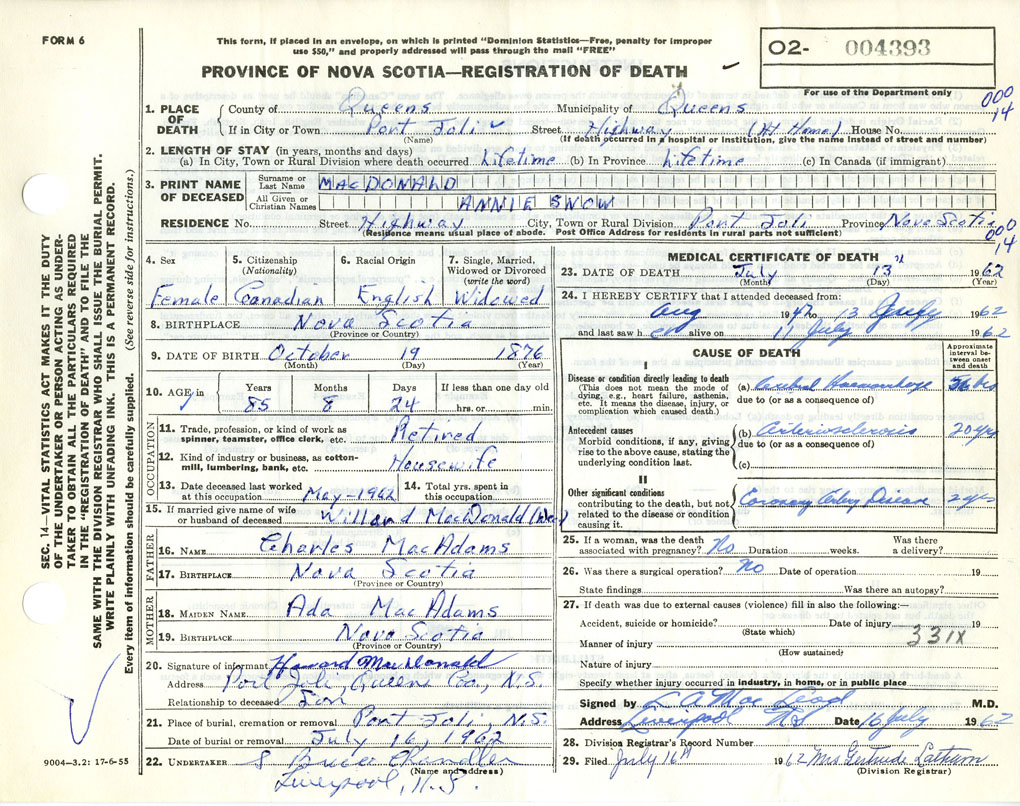 FORM 6
This form, if placed in an envelope, on which is printed "Dominion Statistics—Free, penalty for improper
use $50," and properly addressed will pass through the mail "FREE"
PROVINCE OF NOVA SCOTIA—REGISTRATION OF DEATH
O2- 004393
For use of the Department only
000
14
1. PLACE OF DEATH County of Queens Municipality of Queens
If in City or Town Port Joli Street Highway (At Home) House No.
(Name) (If death occurred in a hospital or institution, give the name instead of street and number)
2. LENGTH OF STAY (in years, months and days)
(a) In City, Town or Rural Division where death occurred Lifetime (b) In Province Lifetime (c) In Canada (if immigrant)
3. PRINT NAME OF DECEASED Surname or Last Name MACDONALD
All Given or Christian Names ANNIE SNOW
RESIDENCE No. Street Highway City, Town or Rural Division Port Joli Province Nova Scotia
(Residence means usual place of abode. Post Office Address for residents in rural parts not sufficient)
000
14
4. Sex Female
5. Citizenship (Nationality) Canadian
6. Racial Origin English
7. Single, Married, Widowed or Divorced (write the word) Widowed
8. BIRTHPLACE Nova Scotia
(Province or Country)
9. DATE OF BIRTH October 19 1876
(Month) (Day) (Year)
10. AGE in Years Months Days If less than one day old
85 8 24 hrs. or min.
OCCUPATION
11. Trade, profession, or kind of work as spinner, teamster, office clerk, etc. Retired
12. Kind of industry or business, as cotton-mill, lumbering, bank, etc. Housewife
13. Date deceased last worked at this occupation May-1962
14. Total yrs. spent in this occupation
15. If married give name of wife or husband of deceased Willard MacDonald
FATHER
16. NAME Charles MacAdams
17. BIRTHPLACE Nova Scotia
(Province or Country)
MOTHER
18. MAIDEN NAME Ada MacAdams
19. BIRTHPLACE Nova Scotia
(Province or Country)
20. Signature of informant Howard MacDonald
Address Port Joli, Queens Co., N.S.
Relationship to deceased Son
21. Place of burial, cremation or removal Port Joli, N.S.
Date of burial or removal July 16, 1962
22. UNDERTAKER S Bruce Chandler
(Name and address)
Liverpool, N.S.
9004—3.2: 17-6-55
SEC. 14—VITAL STATISTICS ACT MAKES IT THE DUTY
OF THE UNDERTAKER OR PERSON ACTING AS UNDER-
TAKER TO OBTAIN ALL THE PARTICULARS REQUIRED
IN THE "REGISTRATION OF DEATH" AND TO FILE THE
SAME WITH THE DIVISION REGISTRAR WHO SHALL ISSUE THE BURIAL PERMIT.
WRITE PLAINLY WITH UNFADING INK. THIS IS A PERMANENT RECORD.
Every item of information should be carefully supplied. (See reverse side for instructions.)
MEDICAL CERTIFICATE OF DEATH
23. DATE OF DEATH July 13 1962
(Month) (Day) (Year)
24. I HEREBY CERTIFY that I attended deceased from:
Aug 1942 to 13 July 1962
and last saw her alive on 11 July 1962
CAUSE OF DEATH
Approximate interval between onset and death
I
Disease or condition directly leading to death
(This does not mean the mode of dying, e.g., heart failure, asthenia, etc. It means the disease, injury, or complication which caused death.)
(a) Cerebral Haemorrhage 36 hrs
due to (or as a consequence of)
Antecedent causes
Morbid conditions, if any, giving rise to the above cause, stating the underlying condition last.
(b) Arteriosclerosis 20 yrs
due to (or as a consequence of)
(c)
II
Other significant conditions
contributing to the death, but not related to the disease or condition causing it.
Coronary Artery Disease 2 yrs
25. If a woman, was the death associated with pregnancy? No Duration weeks. Was there a delivery?
26. Was there a surgical operation? No Date of operation 19
State findings Was there an autopsy?
27. If death was due to external causes (violence) fill in also the following:—
Accident, suicide or homicide? Date of injury 19
(State which)
Manner of injury 331X
(How sustained)
Nature of injury
Specify whether injury occurred in industry, in home, or in public place
Signed by C A MacLeod M.D.
Address Liverpool NS Date 16 July 1962
28. Division Registrar's Record Number
29. Filed July 16th 1962 Mrs Gertrude Latham
(Division Registrar)